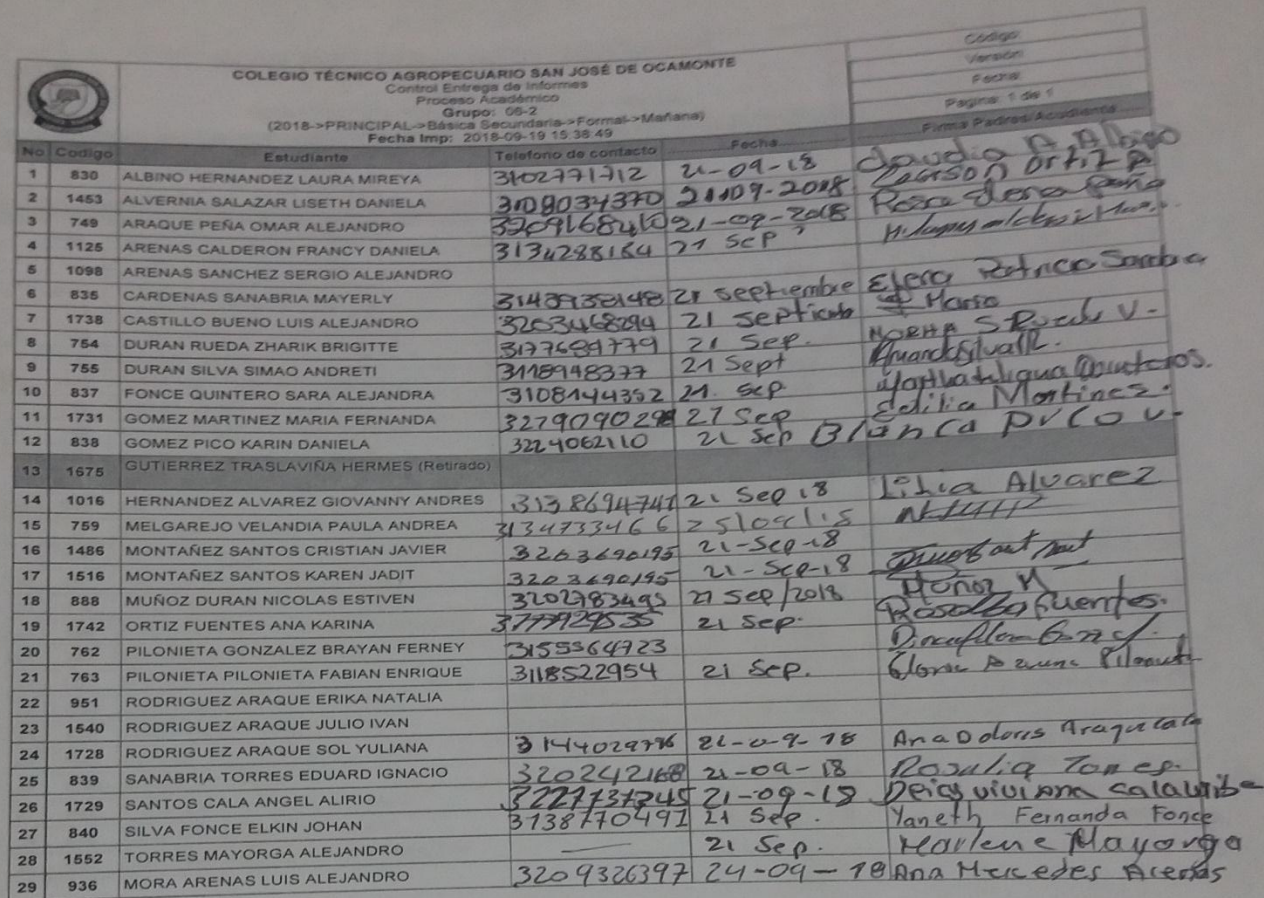 COLEGIO TÉCNICO AGROPECUARIO SAN JOSÉ DE OCAMONTE
Control Entrega de Informes
Proceso Académico
Grupo: 06-2
(2018->PRINCIPAL->Básica Secundaria->Formal->Mañana)
Fecha Imp: 2018-09-19 15:38:49
Código
Versión
Fecha
Página: 1 de 1
No Codigo Estudiante Telefono de contacto Fecha Firma Padres/Acudiente
1 830 ALBINO HERNANDEZ LAURA MIREYA 3102771712 21-09-18 Claudia Albino
2 1453 ALVERNIA SALAZAR LISETH DANIELA 3108034370 21109-2018 Ortiz
3 749 ARAQUE PEÑA OMAR ALEJANDRO 21-09-2018 Rosa Peña
4 1125 ARENAS CALDERON FRANCY DANIELA 3134288164 21 Sep
5 1098 ARENAS SANCHEZ SERGIO ALEJANDRO
6 835 CARDENAS SANABRIA MAYERLY 3143938148 21 septiembre
7 1738 CASTILLO BUENO LUIS ALEJANDRO 3203468294 21
8 754 DURAN RUEDA ZHARIK BRIGITTE 3177689779 21 Sep.
9 755 DURAN SILVA SIMAO ANDRETI 3118948377 21 Sept
10 837 FONCE QUINTERO SARA ALEJANDRA 3108144352 21. sep
11 1731 GOMEZ MARTINEZ MARIA FERNANDA 21 Sep Edilia Martinez.
12 838 GOMEZ PICO KARIN DANIELA 3224062110 21 Sep Blanca
13 1675 GUTIERREZ TRASLAVIÑA HERMES (Retirado)
14 1016 HERNANDEZ ALVAREZ GIOVANNY ANDRES 3138694747 21 Sep 18 Lilia Alvarez
15 759 MELGAREJO VELANDIA PAULA ANDREA 3134733466
16 1486 MONTAÑEZ SANTOS CRISTIAN JAVIER 3203690195 21-Sep-18
17 1516 MONTAÑEZ SANTOS KAREN JADIT 3203690195 21-Sep-18
18 888 MUÑOZ DURAN NICOLAS ESTIVEN 3202783495 21 Sep/2018 Muñoz M
19 1742 ORTIZ FUENTES ANA KARINA 21 Sep. Rosalba Fuentes.
20 762 PILONIETA GONZALEZ BRAYAN FERNEY 3155364723
21 763 PILONIETA PILONIETA FABIAN ENRIQUE 3118522954 21 Sep.
22 951 RODRIGUEZ ARAQUE ERIKA NATALIA
23 1540 RODRIGUEZ ARAQUE JULIO IVAN
24 1728 RODRIGUEZ ARAQUE SOL YULIANA 21-09-18 Ana Dolores Araque
25 839 SANABRIA TORRES EDUARD IGNACIO 320242168 21-09-18 Rosalia Torres.
26 1729 SANTOS CALA ANGEL ALIRIO 3227737245 21-09-18 Deicy viviana cala uribe
27 840 SILVA FONCE ELKIN JOHAN 3138770491 21 Sep. Yaneth Fernanda Fonce
28 1552 TORRES MAYORGA ALEJANDRO — 21 Sep. Marlene Mayorga
29 936 MORA ARENAS LUIS ALEJANDRO 3209326397 24-09-18 Ana Mercedes Arenas